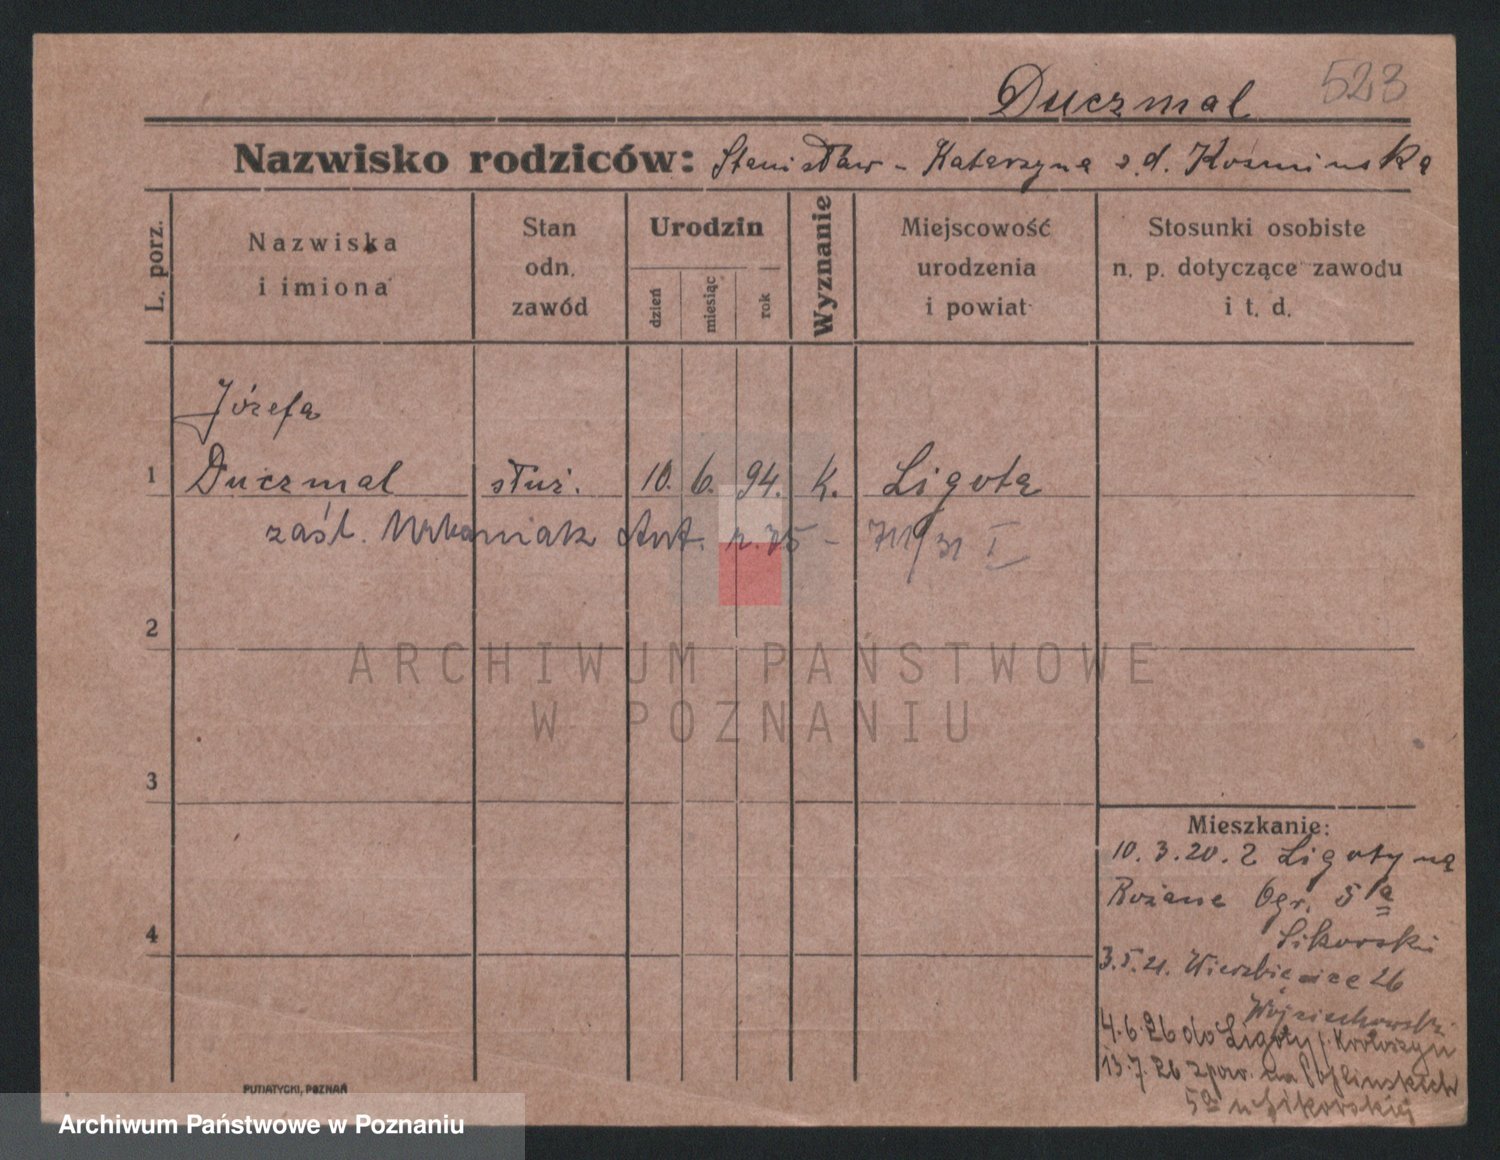 523
Duczmal
Nazwisko rodziców: Stanisław - Katarzyna z d. Kośmińska
L. porz.
Nazwiska
i imiona
Stan
odn.
zawód
Urodzin
dzień
miesiąc
rok
Wyznanie
Miejscowość
urodzenia
i powiat
Stosunki osobiste
n. p. dotyczące zawodu
i t. d.
Józefa
1 Duczmal służ. 10. 6. 94. k. Ligota
zaśl. Urbaniak Ant. r. 75 - 711/31 I
2
3
4
Mieszkanie:
10. 3. 20. z Ligoty na
Różane Ogr. 5a
Sikorski
3.5.21. Wierzbięcice 26
Wojciechowski
4.6.26 do Ligoty / Krotoszyn
13.7.26 z pow. na
5a u Sikorskiej
PUTIATYCKI, POZNAŃ
ARCHIWUM PAŃSTWOWE
W POZNANIU
Archiwum Państwowe w Poznaniu